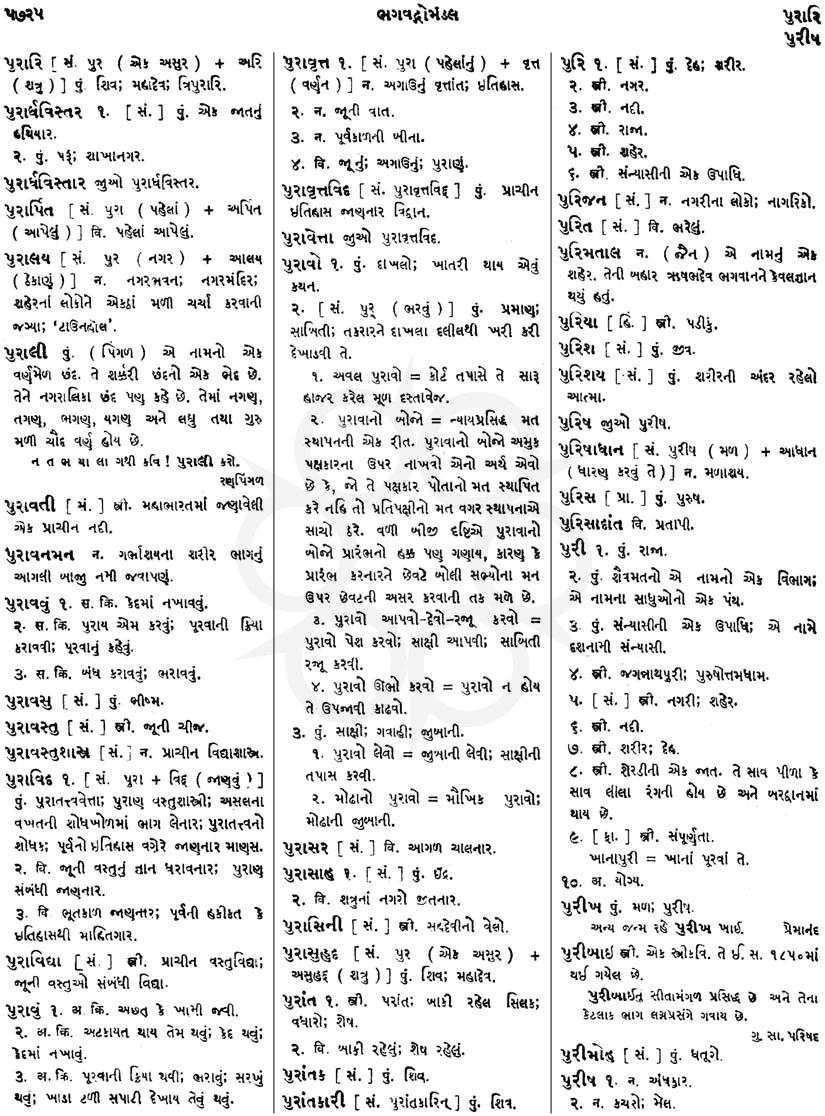 ૫૭૨૫
ભગવદ્ગોમંડલ
પુરારિ
પુરીષ
પુરારિ [ સં. પુર ( એક અસુર ) + અરિ
( શત્રુ ) ] પું. શિવ; મહાદેવ; ત્રિપુરારિ.
પુરાર્ધવિસ્તર ૧. [ સં. ] પું. એક જાતનું
હથિયાર.
૨. પું. પરું; શાખાનગર.
પુરાર્ધવિસ્તાર જુઓ પુરાર્ધવિસ્તર.
પુરાર્પિત [ સં. પુરા ( પહેલાં ) + અર્પિત
( આપેલું ) ] વિ. પહેલાં આપેલું.
પુરાલય [ સં. પુર ( નગર ) + આલય
( ઠેકાણું ) ] ન. નગરભવન; નગરમંદિર;
શહેરનાં લોકોને એકઠાં મળી ચર્ચા કરવાની
જગ્યા; ‘ટાઉનહૉલ’.
પુરાલી પું. ( પિંગળ ) એ નામનો એક
વર્ણમેળ છંદ. તે શર્કરી છંદનો એક ભેદ છે.
તેને નગરાલિકા છંદ પણ કહે છે. તેમાં નગણ,
તગણ, ભગણ, યગણ અને લઘુ તથા ગુરુ
મળી ચૌદ વર્ણ હોય છે.
ન ત ભ યા લા ગથી કવિ ! પુરાલી કરો.
રણપિંગળ
પુરાવતી [ સં. ] સ્ત્રી. મહાભારતમાં જણાવેલી
એક પ્રાચીન નદી.
પુરાવનમન ન. ગર્ભાશયના શરીર ભાગનું
આગલી બાજી નમી જવાપણું.
પુરાવવું ૧. સ. ક્રિ. કેદમાં નખાવવું.
૨. સ. ક્રિ. પુરાય એમ કરવું; પૂરવાની ક્રિયા
કરાવવી; પૂરવાનું કહેવું.
૩. સ. ક્રિ. બંધ કરાવવું; ભરાવવું.
પુરાવસુ [ સં. ] પું. ભીષ્મ.
પુરાવસ્તુ [ સં. ] સ્ત્રી. જૂની ચીજ.
પુરાવસ્તુશાસ્ત્ર [ સં. ] ન. પ્રાચીન વિદ્યાશાસ્ત્ર.
પુરાવિદ ૧. [ સં. પુરા + વિદ્ ( જાણવું ) ]
પું. પુરાતત્ત્વવેત્તા; પુરાણ વસ્તુશાસ્ત્રી; અસલના
વખતની શોધખોળમાં ભાગ લેનાર; પુરાતત્ત્વનો
શોધક; પૂર્વનો ઇતિહાસ વગેરે જાણનાર માણસ.
૨. વિ. જૂની વસ્તુનું જ્ઞાન ધરાવનાર; પુરાણ
સંબંધી જાણનાર.
૩. વિ ભૂતકાળ જાણનાર; પૂર્વની હકીકત કે
ઇતિહાસથી માહિતગાર.
પુરાવિદ્યા [ સં. ] સ્ત્રી. પ્રાચીન વસ્તુવિદ્યા;
જૂની વસ્તુઓ સંબંધી વિદ્યા.
પુરાવું ૧. અ. ક્રિ. અછત કે ખામી જવી.
૨. અ. ક્રિ. અટકાયત થાય તેમ થવું; કેદ થવું;
કેદમાં નખાવું.
૩. અ. ક્રિ. પૂરવાની ક્રિયા થવી; ભરાવું; સરખું
થવું; ખાડા ટળી સપાટી દેખાય તેવું થવું.
પુરાવૃત્ત ૧. [ સં. પુરા ( પહેલાંનું ) + વૃત્ત
( વર્ણન ) ] ન. અગાઉનું વૃત્તાંત; ઇતિહાસ.
૨. ન. જૂની વાત.
૩. ન. પૂર્વકાળની બીના.
૪. વિ. જૂનું; અગાઉનું; પુરાણું.
પુરાવૃત્તવિદ [ સં. પુરાવૃત્તવિદ્ ] પું. પ્રાચીન
ઇતિહાસ જાણનાર વિદ્વાન.
પુરાવેત્તા જુઓ પુરાવૃત્તવિદ.
પુરાવો ૧. પું. દાખલો; ખાતરી થાય એવું
કથન.
૨. [ સં. પુર્ ( ભરવું ) ] પું. પ્રમાણ;
સાબિતી; તકરારને દાખલા દલીલથી ખરી કરી
દેખાડવી તે.
૧. અવલ પુરાવો = કોર્ટ તપાસે તે સારૂ
હાજર કરેલ મૂળ દસ્તાવેજ.
૨. પુરાવાનો બોજો = ન્યાયપ્રસિદ્ધ મત
સ્થાપનની એક રીત. પુરાવાનો બોજો અમુક
પક્ષકારના ઉપર નાખવો એનો અર્થ એવો
છે કે, જો તે પક્ષકાર પોતાનો મત સ્થાપિત
કરે નહિ તો પ્રતિપક્ષીનો મત વગર સ્થાપનાએ
સાચો ઠરે. વળી બીજી દૃષ્ટિએ પુરાવાનો
બોજો પ્રારંભનો હક્ક પણ ગણાય, કારણ કે
પ્રારંભ કરનારને છેવટે બોલી સભ્યોના મન
ઉપર છેવટની અસર કરવાની તક મળે છે.
૩. પુરાવો આપવો-દેવો-રજૂ કરવો =
પુરાવો પેશ કરવો; સાક્ષી આપવી; સાબિતી
રજૂ કરવી.
૪. પુરાવો ઊભો કરવો = પુરાવો ન હોય
તે ઉપજાવી કાઢવો.
૩. પું. સાક્ષી; ગવાહી; જુબાની.
૧. પુરાવો લેવો = જુબાની લેવી; સાક્ષીની
તપાસ કરવી.
૨. મોઢાનો પુરાવો = મૌખિક પુરાવો;
મોઢાની જુબાની.
પુરાસર [ સં. ] વિ. આગળ ચાલનાર.
પુરાસાહ ૧. [ સં. ] પું. ઇંદ્ર.
૨. વિ. શત્રુનાં નગરો જીતનાર.
પુરાસિની [ સં. ] સ્ત્રી. સહદેવીનો વેલો.
પુરાસુહૃદ [ સં. પુર ( એક અસુર ) +
અસુહૃદ્ ( શત્રુ ) ] પું. શિવ; મહાદેવ.
પુરાંત ૧. સ્ત્રી. પરાંત; બાકી રહેલ સિલક;
વધારો; શેષ.
૨. વિ. બાકી રહેલું; શેષ રહેલું.
પુરાંતક [ સં. ] પું. શિવ.
પુરાંતકારી [ સં. પુરાંતકારિન્ ] પું. શિવ.
પુરિ ૧. [ સં. ] પું. દેહ; શરીર.
૨. સ્ત્રી. નગર.
૩. સ્ત્રી. નદી.
૪. સ્ત્રી. રાજા.
૫. સ્ત્રી. શહેર.
૬. સ્ત્રી. સંન્યાસીની એક ઉપાધિ.
પુરિજન [ સં. ] ન. નગરીના લોકો; નાગરિકો.
પુરિત [ સં. ] વિ. ભરેલું.
પુરિમતાલ ન. ( જૈન ) એ નામનું એક
શહેર. તેની બહાર ઋષભદેવ ભગવાનને કેવલજ્ઞાન
થયું હતું.
પુરિયા [ હિં. ] સ્ત્રી. પડીકું.
પુરિશ [ સં. ] પું. જીવ.
પુરિશય [ સં. ] પું. શરીરની અંદર રહેલો
આત્મા.
પુરિષ જુઓ પુરીષ.
પુરિષાધાન [ સં. પુરીષ ( મળ ) + આધાન
( ધારણ કરવું તે ) ] ન. મળાશય.
પુરિસ [ પ્રા. ] પું. પુરુષ.
પુરિસાદાંત વિ. પ્રતાપી.
પુરી ૧. પું. રાજા.
૨. પું. શૈવમતનો એ નામનો એક વિભાગ;
એ નામના સાધુઓનો એક પંથ.
૩. પું. સંન્યાસીની એક ઉપાધિ; એ નામે
દશનામી સંન્યાસી.
૪. સ્ત્રી. જગન્નાથપુરી; પુરુષોત્તમધામ.
૫. [ સં. ] સ્ત્રી. નગરી; શહેર.
૬. સ્ત્રી. નદી.
૭. સ્ત્રી. શરીર; દેહ.
૮. સ્ત્રી. શેરડીની એક જાત. તે સાવ પીળા કે
સાવ લીલા રંગની હોય છે અને બરદ્દાનમાં
થાય છે.
૯. [ ફા. ] સ્ત્રી. સંપૂર્ણતા.
ખાનાપુરી = ખાનાં પૂરવાં તે.
૧૦. અ. યોગ્ય.
પુરીખ પું. મળ; પુરીષ.
અન્ય જન્મ રહે પુરીખ ખાઈ. પ્રેમાનંદ
પુરીબાઈ સ્ત્રી. એક સ્ત્રીકવિ. તે ઈ. સ. ૧૮૫૦માં
થઈ ગયેલ છે.
પુરીબાઈનું સીતામંગળ પ્રસિદ્ધ છે અને તેના
કેટલાક ભાગ લગ્નપ્રસંગે ગવાય છે.
ગુ. સા. પરિષદ
પુરીમોહ [ સં. ] પું. ધતૂરો.
પુરીષ ૧. ન. અંધકાર.
૨. ન. કચરો; મેલ.